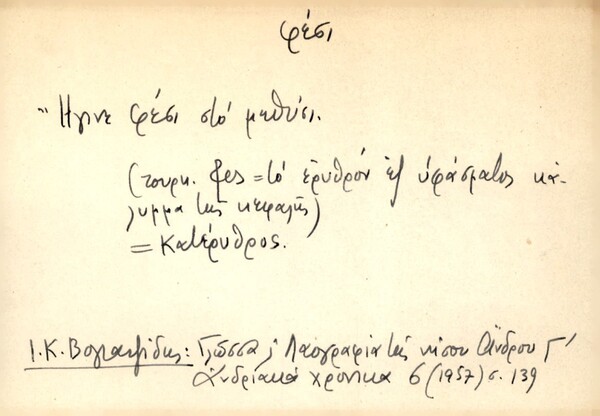 φέσι
"Ήγινε φέσι στό μεθύσι.
(τουρκ. fes = τό ἐρυθρόν ἐξ ὑφάσματος κά-
λυμμα τῆς κεφαλῆς)
= Κατέρυθρος.
Ι. Κ. Βογιατζίδης: Γλῶσσα & Λαογραφία τῆς νήσου Ἄνδρου Γ'
Ἀνδριακά χρονικά 6 (1957) σ. 139